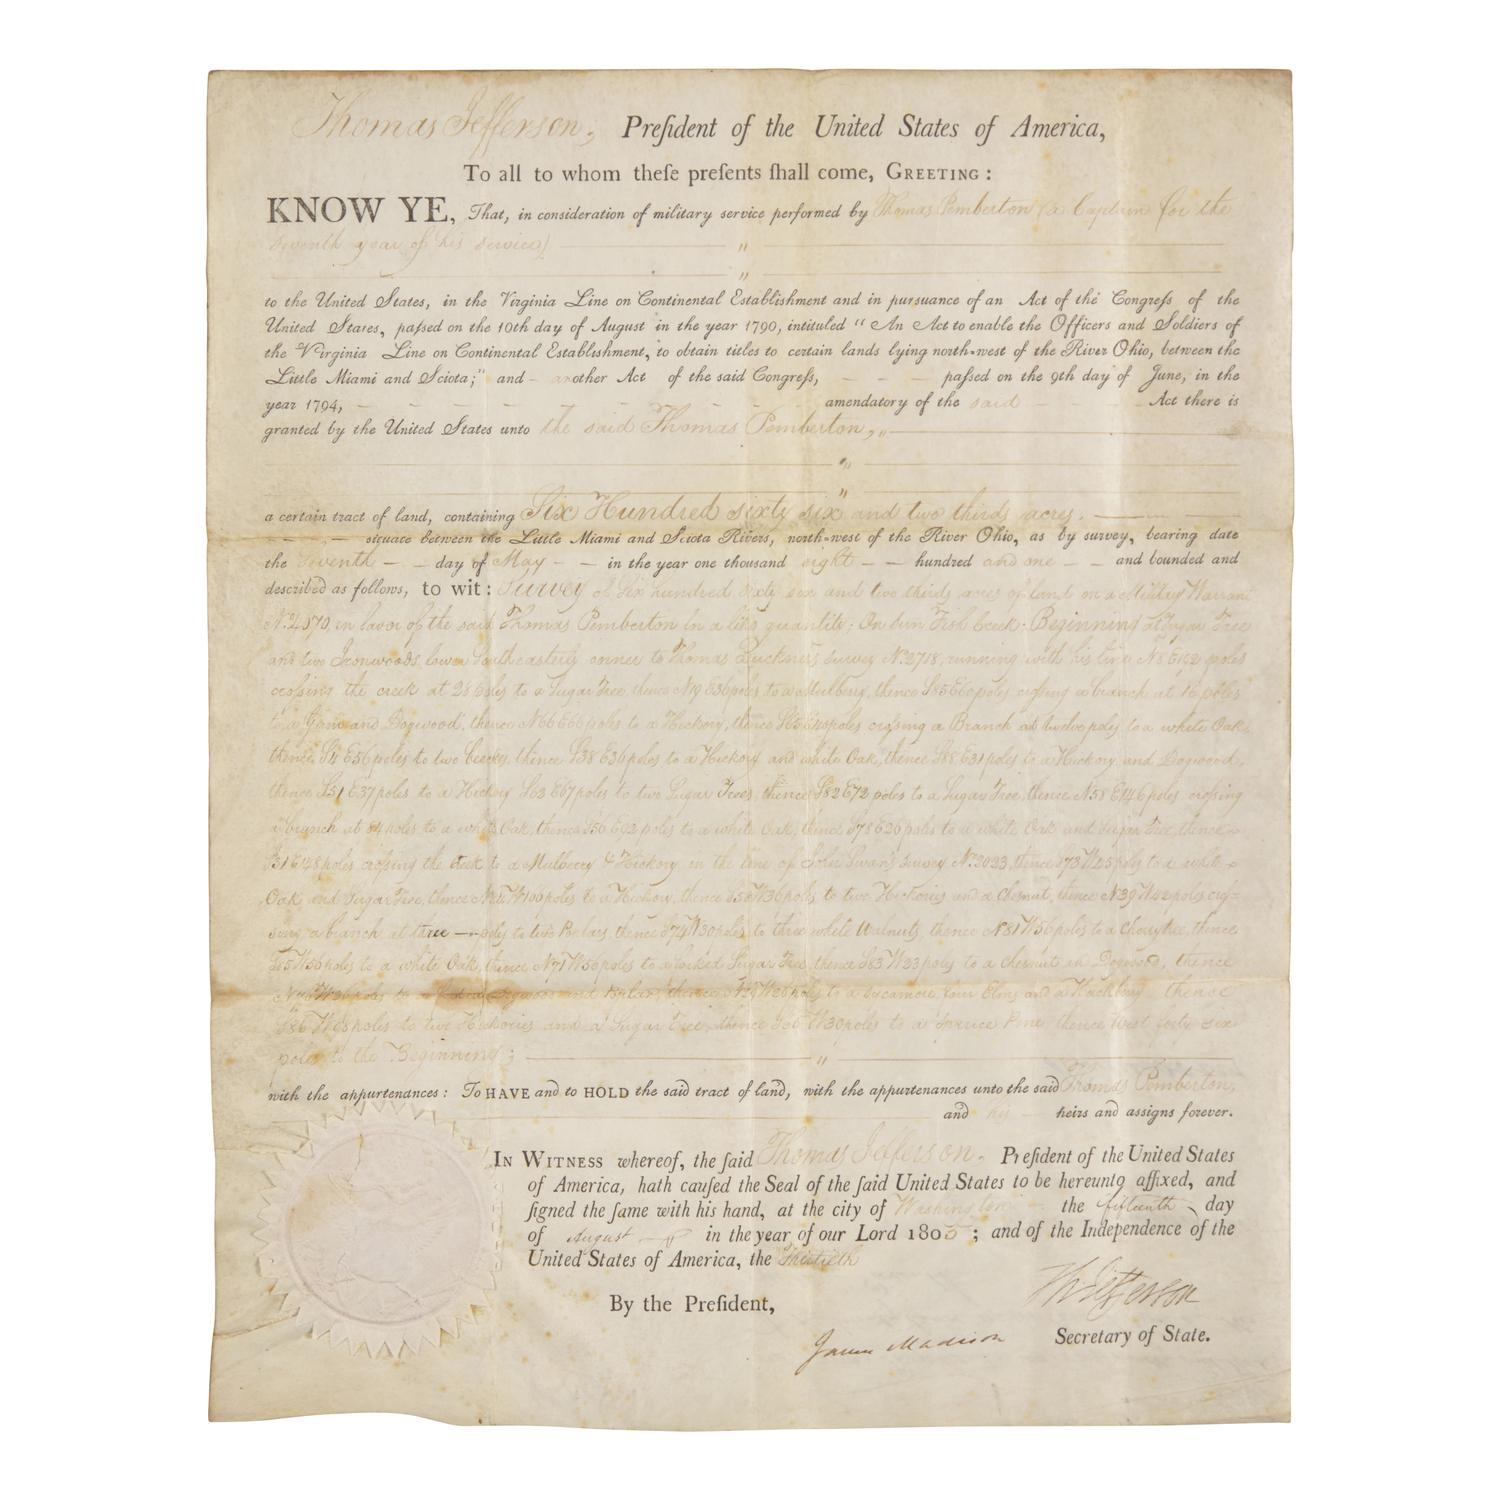 Thomas Jefferson, Preſident of the United States of America,
To all to whom theſe preſents ſhall come, GREETING:
KNOW YE, That, in consideration of military service performed by Thomas Pemberton (a Captain for the
seventh year of his service)
to the United States, in the Virginia Line on Continental Establishment and in pursuance of an Act of the Congreſs of the
United States, paſsed on the 10th day of August in the year 1790, intituled "An Act to enable the Officers and Soldiers of
the Virginia Line on Continental Establishment, to obtain titles to certain lands lying north-west of the River Ohio, between the
Little Miami and Sciota;" and another Act of the said Congreſs, paſsed on the 9th day of June, in the
year 1794, amendatory of the said Act there is
granted by the United States unto the said Thomas Pemberton,
a certain tract of land, containing Six Hundred sixty six and two thirds acres.
situate between the Little Miami and Sciota Rivers, north-west of the River Ohio, as by survey, bearing date
the seventh day of May in the year one thousand eight hundred and one and bounded and
described as follows, to wit: Survey of Six hundred sixty six and two thirds acres of land on a Military Warrant
in favor of the said Thomas Pemberton in a like quantity; On Beginning at Sugar Tree
and two Ironwoods, lower Southeasterly corner to Thomas survey No. 2718, running with his line poles
crossing the creek at poles to a Sugar Tree, thence poles to a Mulberry, thence S85 E60 poles, crossing a branch at 16 poles
to a and Dogwood, thence N66 E66 poles to a Hickory, thence poles crossing a Branch at twelve poles to a white Oak,
thence E56 poles to two thence S38 E36 poles to a Hickory and white Oak, thence S88 E31 poles to a Hickory and Dogwood,
thence S51 E37 poles to a Hickory S62 E67 poles to two Sugar Trees, thence S82 E72 poles to a Sugar Tree, thence N58 E146 poles crossing
a branch at 84 poles to a white Oak, thence poles to a white Oak, thence S78 E26 poles to a white Oak and Sugar Tree, thence
poles crossing the creek to a Mulberry & Hickory in the line of John Swan's survey No. 2023, thence poles to a white
Oak and Sugar Tree, thence poles to a Hickory, thence poles to two Hickories and a chesnut, thence poles croſ-
sing a branch at three poles to two thence S74 W30 poles to three white Walnuts, thence N81 W56 poles to a cherrytree, thence
poles to a white Oak, thence N71 W56 poles to a forked Sugar Tree, thence S83 W23 poles to a chesnut Dogwood, thence
poles to a and thence poles to a sycamore, four Elms and a Hackberry, thence
poles to two Hickories and a Sugar Tree, thence W30 poles to a Spruce Pine, thence West forty six
poles to the Beginning;
with the appurtenances: To HAVE and to HOLD the said tract of land, with the appurtenances unto the said Thomas Pemberton,
and his heirs and assigns forever.
IN WITNESS whereof, the ſaid Thomas Jefferson, Preſident of the United States
of America, hath cauſed the Seal of the ſaid United States to be hereunto affixed, and
ſigned the ſame with his hand, at the city of Washington the fifteenth day
of August in the year of our Lord 1805; and of the Independence of the
United States of America, the Thirtieth
Th Jefferson
By the Preſident,
James Madison Secretary of State.